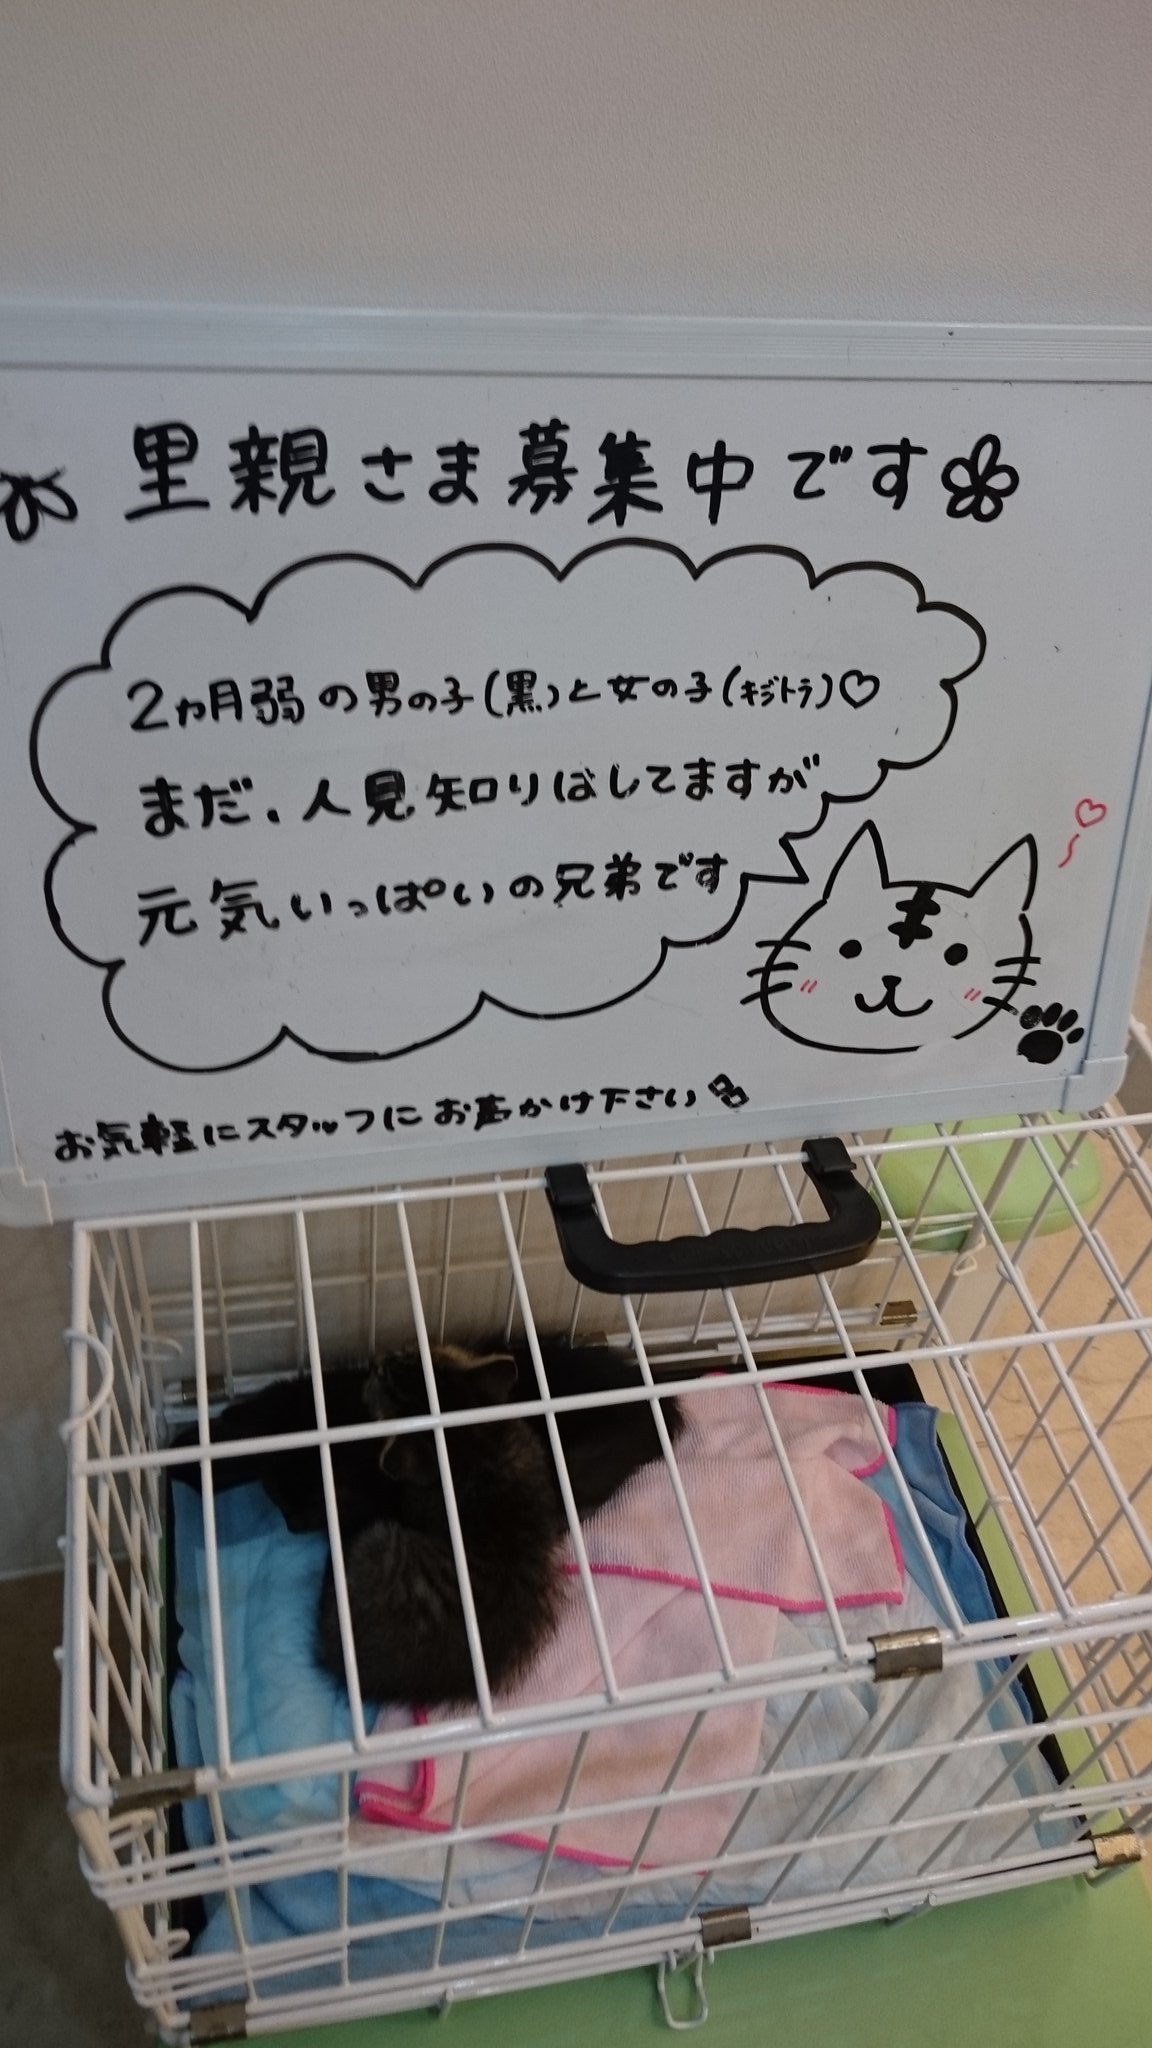 里親さま募集中です
2ヵ月弱の男の子(黒)と女の子(キジトラ)♡
まだ、人見知りはしてますが
元気いっぱいの兄弟です
お気軽にスタッフにお声かけ下さい